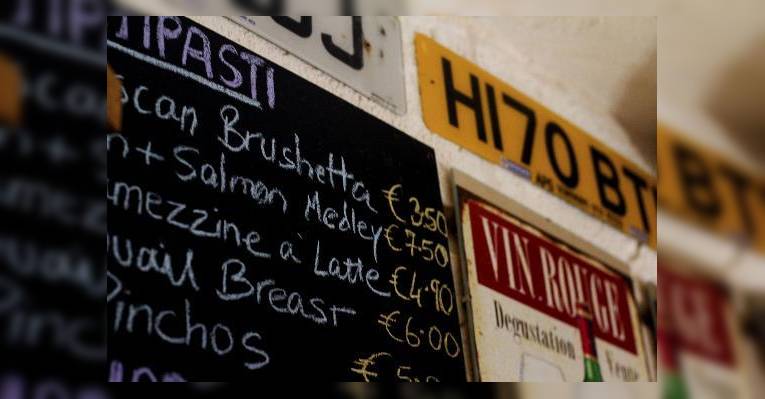 TIPASTI
scan Brushetta €3.50
n + Salmon Medley €7.50
mezzine à Latte €4.90
uail Breast €6.00
Pinchos
H170 BT
VIN.ROUGE
Degustation Vente